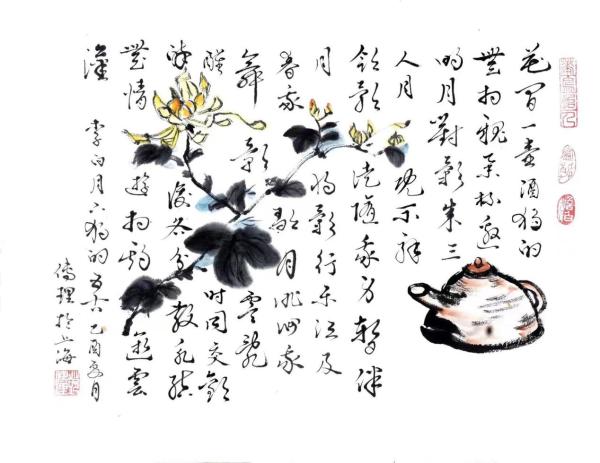 花間一壺酒獨酌
無相親舉杯邀
明月對影成三
人月既不解
飲影徒隨我身暫伴
月將影行樂須及
春我歌月徘徊我
舞影零亂
醒時同交歡
醉後各分散永結
無情遊相期邈雲
漢 李白月下獨酌五古乙酉夏月
傅理於上海